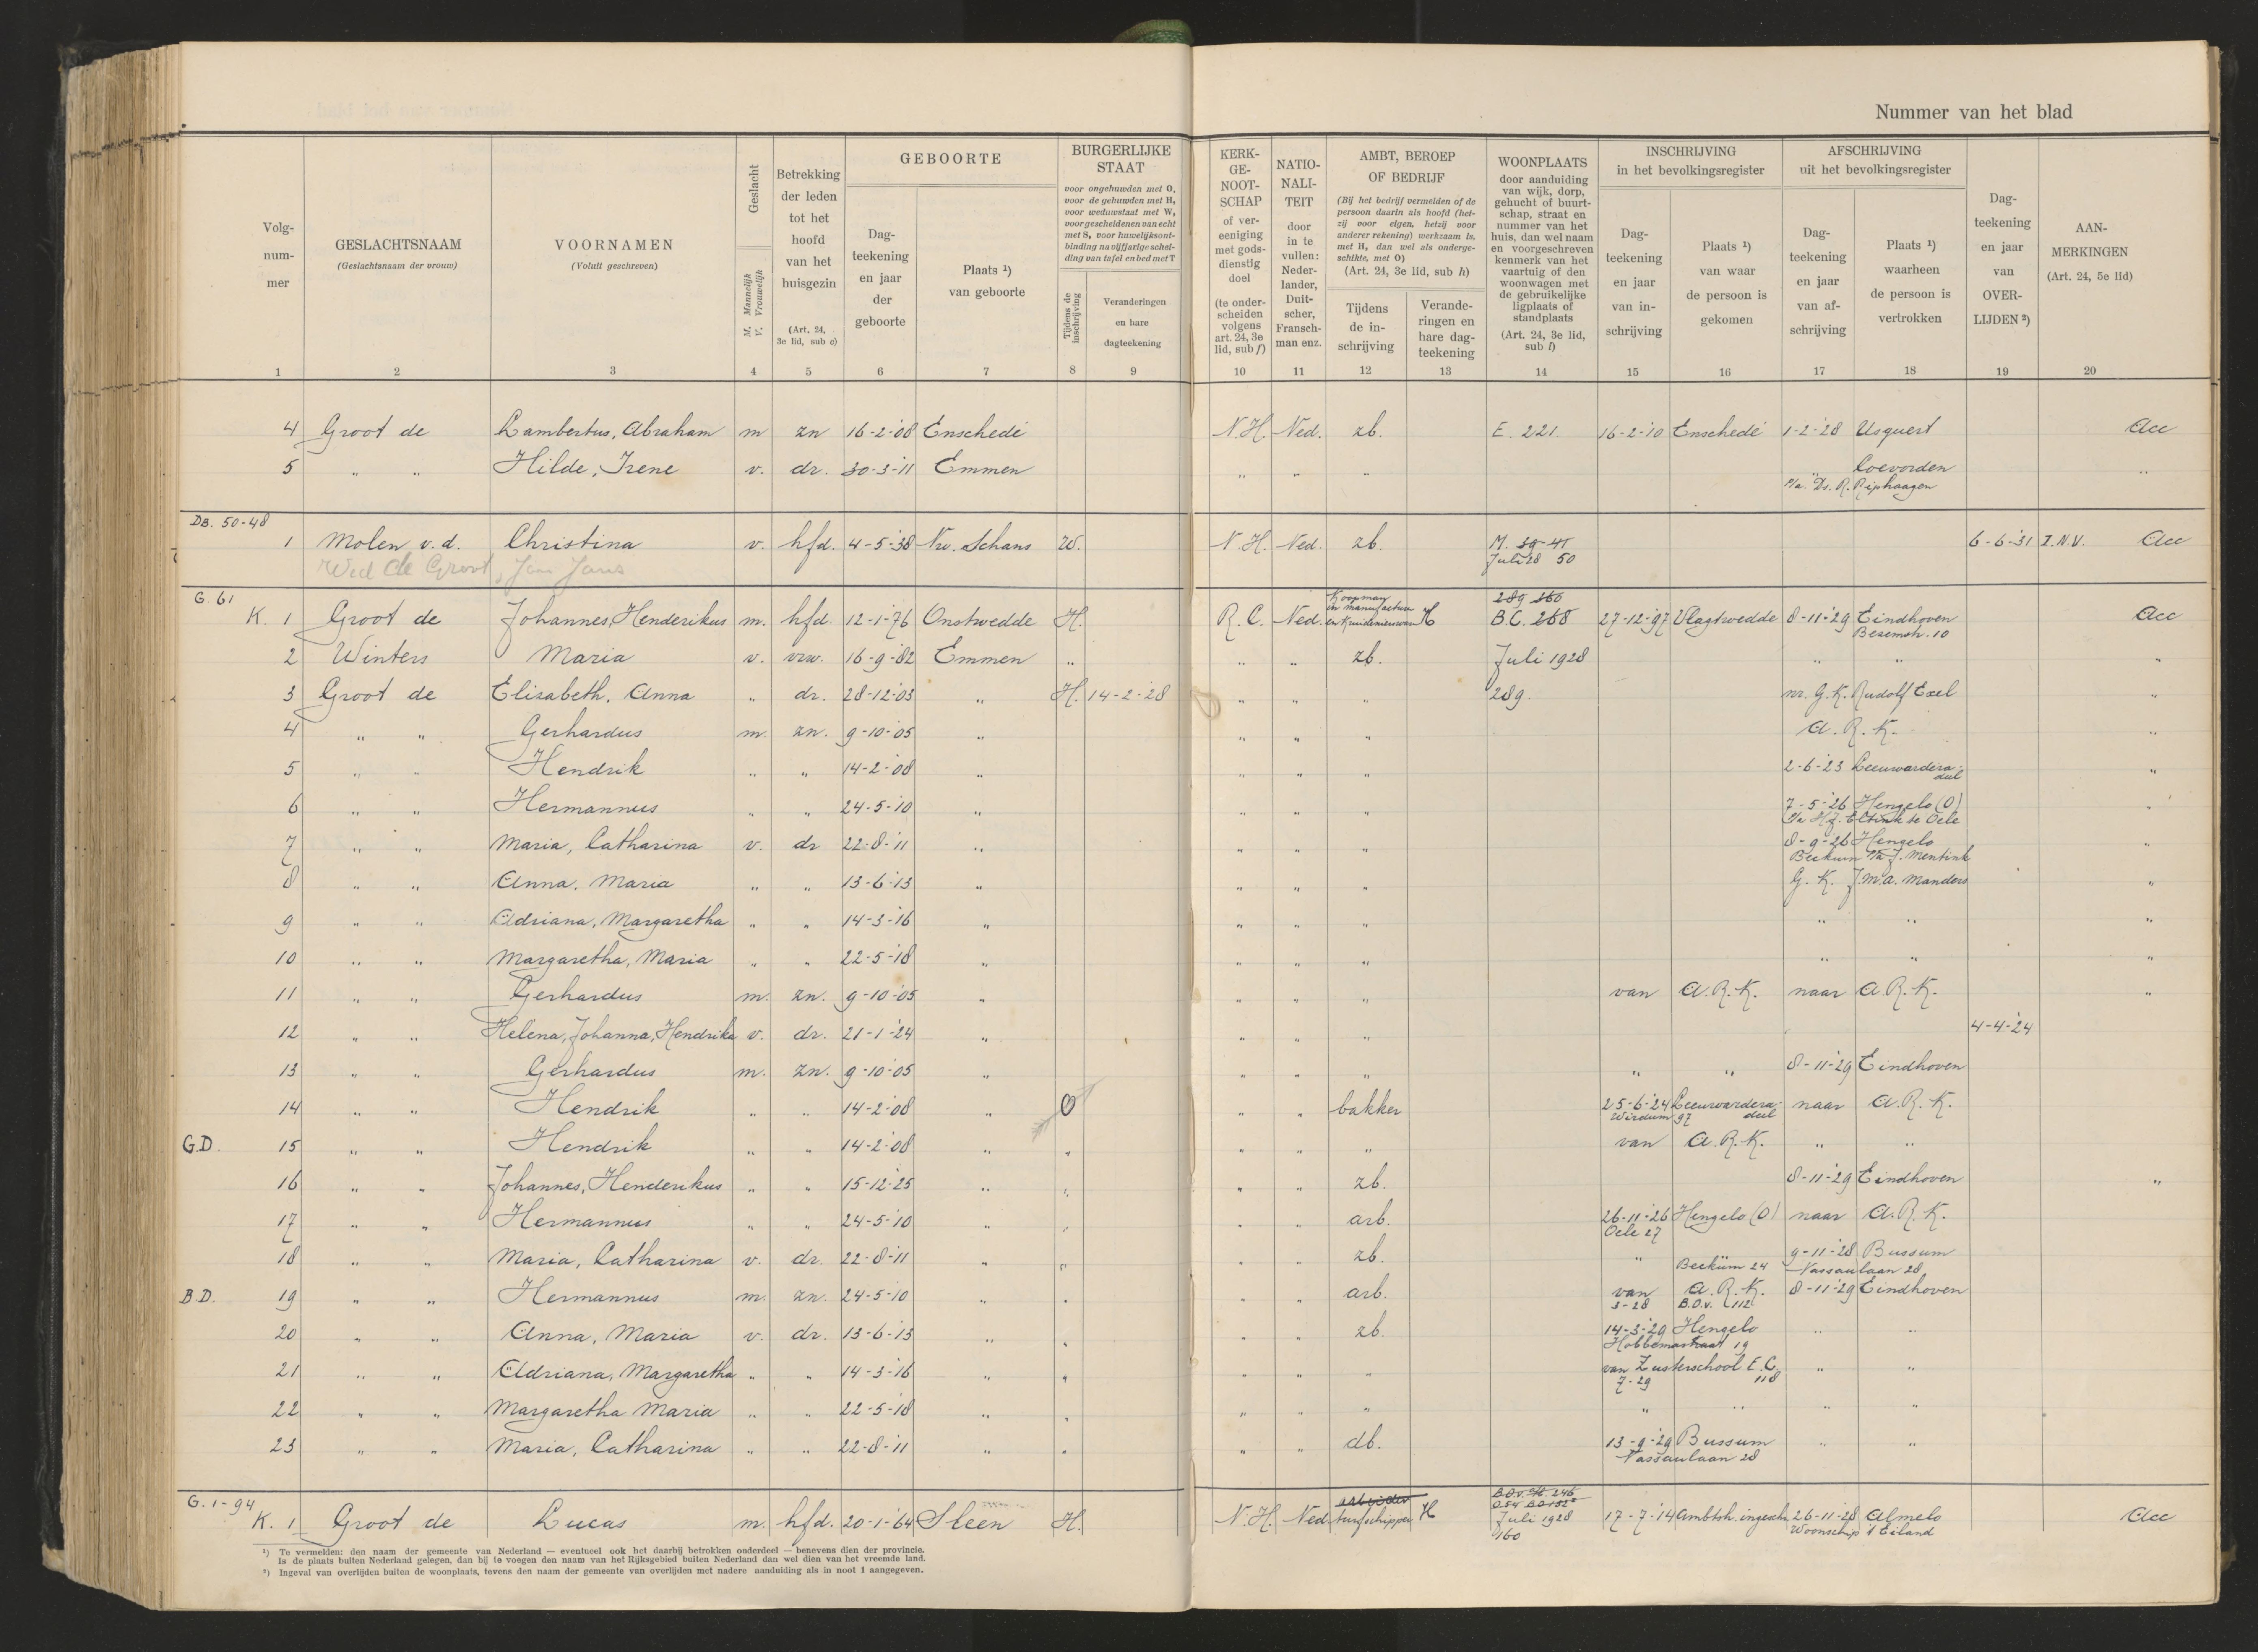 Nummer van het blad
Volg-
num-
mer
GESLACHTSNAAM
(Geslachtsnaam der vrouw)
VOORNAMEN
(Voluit geschreven)
Geslacht
M. Mannelijk
V. Vrouwelijk
Betrekking
der leden
tot het
hoofd
van het
huisgezin
(Art. 24,
3e lid, sub e)
GEBOORTE
Dag-
teekening
en jaar
der
geboorte
Plaats ¹)
van geboorte
BURGERLIJKE
STAAT
voor ongehuwden met O,
voor de gehuwden met H,
voor weduwstaat met W,
voor gescheidenen van echt
met S, voor huwelijksont-
binding na vijfjarige schei-
ding van tafel en bed met T
Tijdens de
inschrijving
Veranderingen
en hare
dagteekening
KERK-
GE-
NOOT-
SCHAP
of ver-
eeniging
met gods-
dienstig
doel
(te onder-
scheiden
volgens
art. 24, 3e
lid, sub f)
NATIO-
NALI-
TEIT
door
in te
vullen:
Neder-
lander,
Duit-
scher,
Fransch-
man enz.
AMBT, BEROEP
OF BEDRIJF
(Bij het bedrijf vermelden of de
persoon daarin als hoofd (het-
zij voor eigen, hetzij voor
anderer rekening) werkzaam is,
met H, dan wel als onderge-
schikte, met O)
(Art. 24, 3e lid, sub h)
Tijdens
de in-
schrijving
Verande-
ringen en
hare dag-
teekening
WOONPLAATS
door aanduiding
van wijk, dorp,
gehucht of buurt-
schap, straat en
nummer van het
huis, dan wel naam
en voorgeschreven
kenmerk van het
vaartuig of den
woonwagen met
de gebruikelijke
ligplaats of
standplaats
(Art. 24, 3e lid,
sub i)
INSCHRIJVING
in het bevolkingsregister
Dag-
teekening
en jaar
van in-
schrijving
Plaats ¹)
van waar
de persoon is
gekomen
AFSCHRIJVING
uit het bevolkingsregister
Dag-
teekening
en jaar
van af-
schrijving
Plaats ¹)
waarheen
de persoon is
vertrokken
Dag-
teekening
en jaar
van
OVER-
LIJDEN ²)
AAN-
MERKINGEN
(Art. 24, 5e lid)
1 2 3 4 5 6 7 8 9 10 11 12 13 14 15 16 17 18 19 20
4 Groot de Lambertus, Abraham m zn 16-2-'08 Enschede N.H. Ned. zb. E. 221. 16-2-'10 Enschede 1-2-'28 Usquert Acc
5 " " Hilde, Irene v. dr. 30-3-'11 Emmen " " " Coevorden "
p/a. Ds. R. Riphaagen
DB. 50-48
1 Molen v.d. Christina v. hfd. 4-5-'38 Nw. Schans W. N.H. Ned. zb. M. 39-41 6-6-'31 I.N.V. Acc
Wed de Groot, Jan Jans Juli 28 50
G. 61
K. 1 Groot de Johannes, Henderikus m. hfd. 12-1-'76 Onstwedde H. R.C. Ned. Koopman in manufacturen en Kruidenierswaren H 289 160 B.C. 268 27-12-'97 Vlagtwedde 8-11-'29 Eindhoven Acc
Besemstr. 10
2 Winters Maria v. vrw. 16-9-'82 Emmen " " " zb. Juli 1928 " " "
3 Groot de Elisabeth, Anna " dr. 28-12-'03 " H. 14-2-'28 " " " 289. nr. G.K. Rudolf Exel "
4 " " Gerhardus m. zn. 9-10-'05 " " " " A.R.K. "
5 " " Hendrik " " 14-2-'08 " " " " 2-6-'23 Leeuwardera-deel "
6 " " Hermannus " " 24-5-'10 " " " " 7-5-'26 Hengelo (O) "
p/a H.J. Eltink te Oele
7 " " Maria, Catharina v. dr 22-8-'11 " " " " 8-9-'26 Hengelo "
Beckum p/a J. Mentink
8 " " Anna, Maria " " 13-6-'13 " " " " G.K. J.M.A. Manders "
9 " " Adriana, Margaretha " " 14-3-'16 " " " " " " "
10 " " Margaretha, Maria " " 22-5-'18 " " " " " " "
11 " " Gerhardus m. zn. 9-10-'05 " " " " van A.R.K. naar A.R.K. "
12 " " Helena, Johanna, Hendrika v. dr. 21-1-'24 " " " " 4-4-'24
13 " " Gerhardus m. zn. 9-10-'05 " " " " " " 8-11-'29 Eindhoven
14 " " Hendrik " " 14-2-'08 " O " " bakker 25-6-'24 Leeuwardera-deel naar A.R.K.
Wirdum 97
G.D. 15 " " Hendrik " " 14-2-'08 " " " " " van A.R.K. " "
16 " " Johannes, Henderikus " " 15-12-'25 " " " " zb. 8-11-'29 Eindhoven "
17 " " Hermannus " " 24-5-'10 " " " " arb. 26-11-'26 Hengelo (O) naar A.R.K.
Oele 27
18 " " Maria, Catharina v. dr. 22-8-'11 " " " " zb. " Beckum 24 9-11-'28 Bussum
Nassaulaan 28
B.D. 19 " " Hermannus m. zn. 24-5-'10 " " " " arb. van A.R.K. 8-11-'29 Eindhoven
3-28 B.O.v. 112
20 " " Anna, Maria v. dr. 13-6-'13 " " " " zb. 14-3-'29 Hengelo " "
Hobbemastraat 19
21 " " Adriana, Margaretha " " 14-3-'16 " " " " " van Zusterschool E.C. " "
7-29 118
22 " " Margaretha Maria " " 22-5-'18 " " " " " " " " "
23 " " Maria, Catharina " " 22-8-'11 " " " " db. 13-9-'29 Bussum " "
Nassaulaan 28
G. 1-94
K. 1 Groot de Lucas m. hfd. 20-1-'64 Sleen H. N.H. Ned arbeider turfschipper H Juli 1928 17-7-'14 Ambtsh. ingeschr. 26-11-'28 Almelo Acc
160 Woonschip 't Eiland
¹) Te vermelden: den naam der gemeente van Nederland — eventueel ook het daarbij betrokken onderdeel — benevens dien der provincie.
Is de plaats buiten Nederland gelegen, dan bij te voegen den naam van het Rijksgebied buiten Nederland dan wel dien van het vreemde land.
²) Ingeval van overlijden buiten de woonplaats, tevens den naam der gemeente van overlijden met nadere aanduiding als in noot 1 aangegeven.